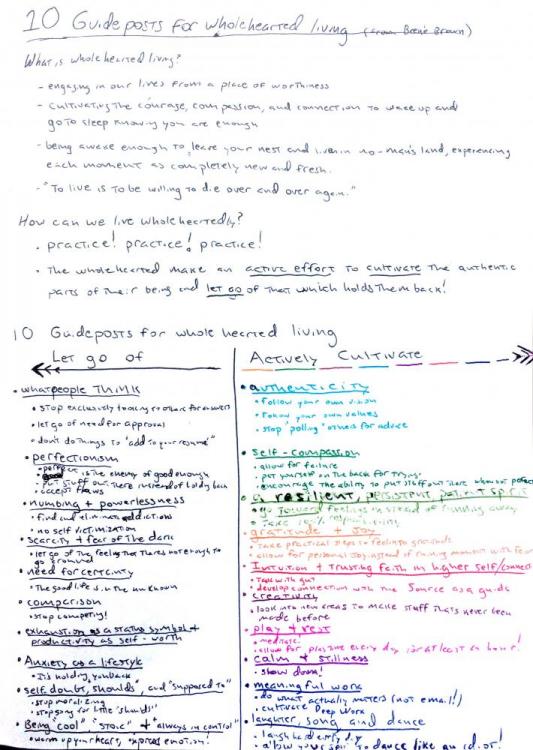 10 Guideposts for wholehearted living (from Brené Brown)
What is wholehearted living?
- engaging in our lives from a place of worthiness
- cultivating the courage, compassion, and connection to wake up and
go to sleep knowing you are enough
- being awake enough to leave your nest and live in no-man's land, experiencing
each moment as completely new and fresh.
- "To live is to be willing to die over and over again."
How can we live wholeheartedly?
• practice! practice! practice!
• The wholehearted make an active effort to cultivate the authentic
parts of their being and let go of that which holds them back!
10 Guideposts for whole hearted living
Let go of
• what people Think
• stop exclusively looking to others for answers
• let go of need for approval
• don't do things to "add to your resume"
• perfectionism
• perfect is the enemy of good enough
• put stuff out there instead of holding back
• accept flaws
• numbing + powerlessness
• find and eliminate addictions
• no self victimization
• scarcity + fear of the dark
• let go of the feeling that there's not enough to
go around
• need for certainty
• The good life is in the unknown
• comparison
• stop competing!
• exhaustion as a status symbol +
productivity as self-worth
• Anxiety as a lifestyle
• It's holding you back
• self doubt, shoulds, and "supposed to"
• stop moralizing
• stop going for little "shoulds"
• Being "cool" "stoic" + "always in control"
• warm up your heart, express emotion!
Actively Cultivate
• authenticity
• Follow your own vision
• Follow your own values
• stop "polling" others for advice
• self-compassion
• allow for failure
• pat yourself on the back for trying!
• encourage the ability to put stuff out there when not perfect
• a resilient, persistent, patient spirit
• go toward feelings instead of running away
• Take 100% responsibility
• gratitude + Joy
• Take practical steps to feel into gratitude
• allow for personal joy instead of ruining moment with fear
• Intuition + Trusting faith in higher self/connection
• Tap in with gut
• develop connection with the Source as a guide
• Creativity
• look into new areas to make stuff that's never been
made before
• play + rest
• meditate!
• allow for playtime every day for at least an hour!
• calm + stillness
• slow down!
• meaningful work
• do what actually matters (not email!)
• cultivate Deep Work
• laughter, song and dance
• laugh hard every day
• allow your spirit to dance like an idiot!